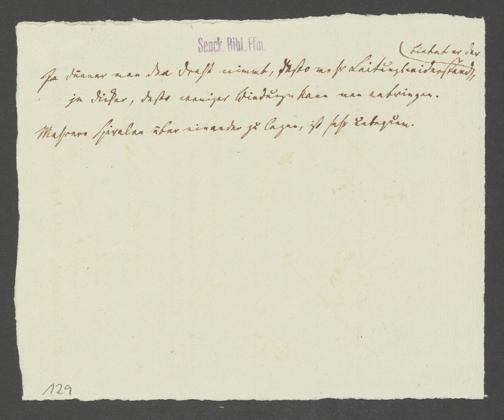 Senck. Bibl. Ffm.
(bietet er dar
Je dünner man den Draht nimmt, desto mehr Leitungswiderstand,
je dicker, desto weniger Windungen kann man anbringen.
Mehrere Spiralen über einander zu legen, ist sehr unbequem.
129